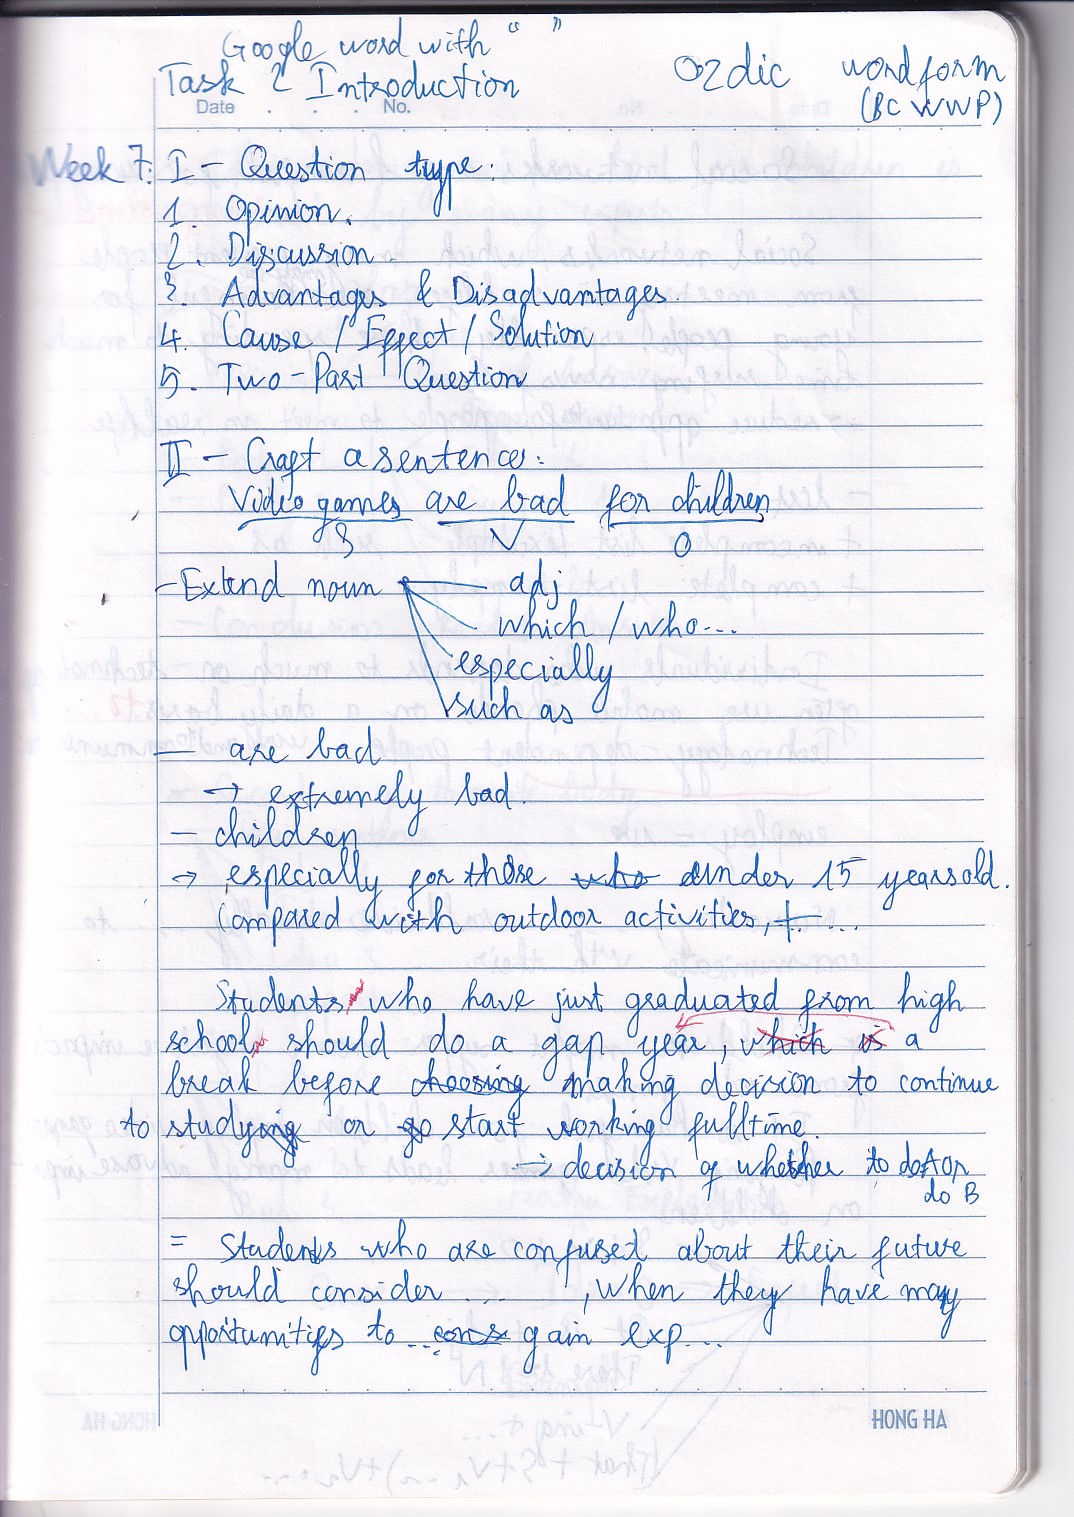 Google word with " "
Task 2 Introduction
Ozdic
wordform
(BC WWP)
Date . . . No.
Week 7: I - Question type:
1. Opinion.
2. Discussion.
3. Advantages & Disadvantages.
4. Cause / Effect / Solution
5. Two-Part Question
II - Craft a sentence:
Video games are bad for children
S V O
- Extend noun adj
which / who...
especially
such as
- are bad
→ extremely bad.
- children
→ especially for those who under 15 years old.
Compared with outdoor activities, + ...
Students who have just graduated from high
school should do a gap year, which is a
break before choosing making decision to continue
to studying or go start working fulltime.
→ decision of whether to do A or
do B
= Students who are confused about their future
should consider ......, when they have many
opportunities to ... cons gain exp...
HONG HA